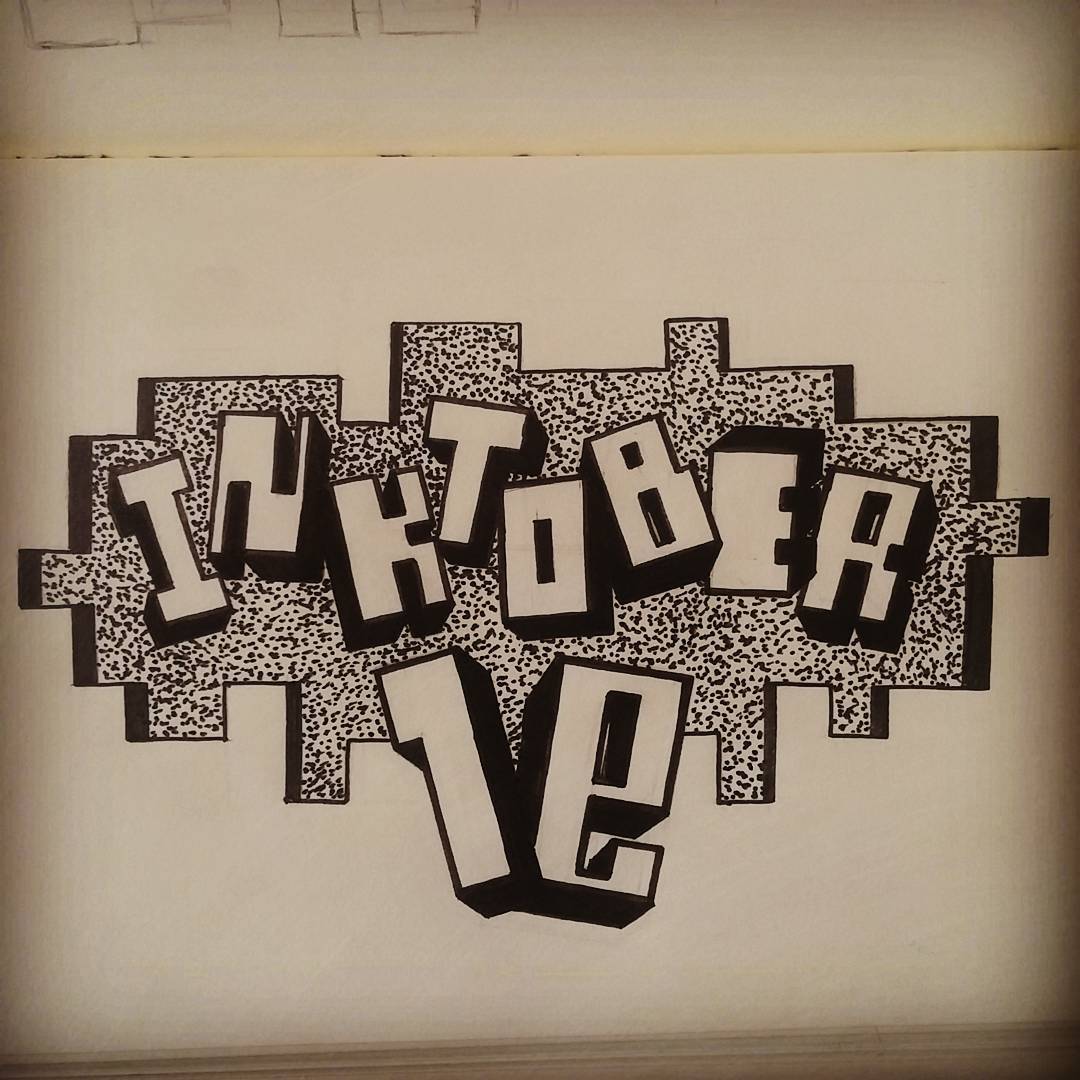 INKTOBER
1e